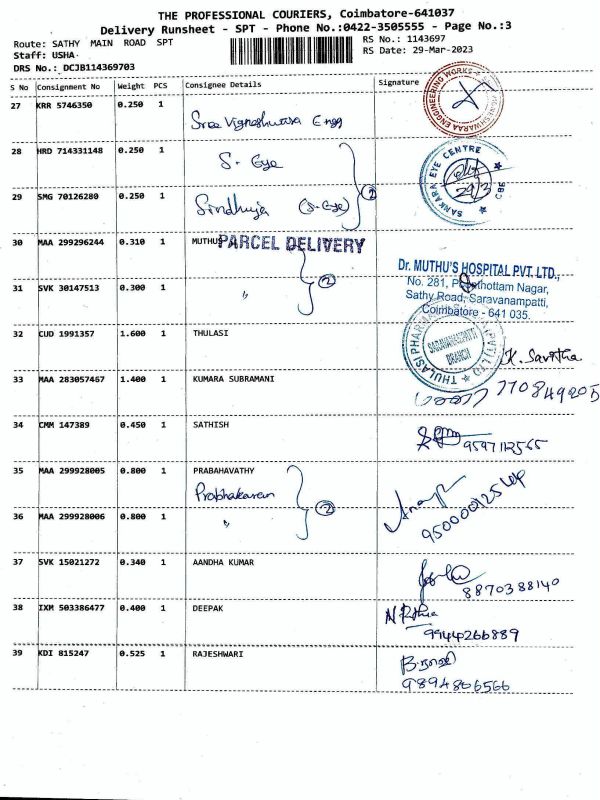 THE PROFESSIONAL COURIERS, Coimbatore-641037
Delivery Runsheet - SPT - Phone No.:0422-3505555 - Page No.:3
Route: SATHY MAIN ROAD SPT
RS No.: 1143697
Staff: USHA
RS Date: 29-Mar-2023
DRS No.: DCJB114369703
S No Consignment No Weight PCS Consignee Details Signature
27 KRR 5746350 0.250 1
Sree Vigneshwara Engg
28 HRD 714331148 0.250 1
S. Eye
SANKARA EYE CENTRE
CBE
29/3
29 SMG 70126280 0.250 1
Sindhuja (S. Eye)
2
30 MAA 299296244 0.310 1 MUTHUS
PARCEL DELIVERY
31 SVK 30147513 0.300 1 "
2
Dr. MUTHU'S HOSPITAL PVT. LTD.,
No. 281, Thottam Nagar,
Sathy Road, Saravanampatti,
Coimbatore - 641 035.
32 CUD 1991357 1.600 1 THULASI
SARAVANAMPATTI
BRANCH
K. Savitha
33 MAA 283057467 1.400 1 KUMARA SUBRAMANI
34 CMM 147389 0.450 1 SATHISH
35 MAA 299928005 0.800 1 PRABAHAVATHY
Prabhakaran
36 MAA 299928006 0.800 1 "
2
37 SVK 15021272 0.340 1 AANDHA KUMAR
8870388140
38 IXM 503386477 0.400 1 DEEPAK
9944266889
39 KDI 815247 0.525 1 RAJESHWARI
9894806566